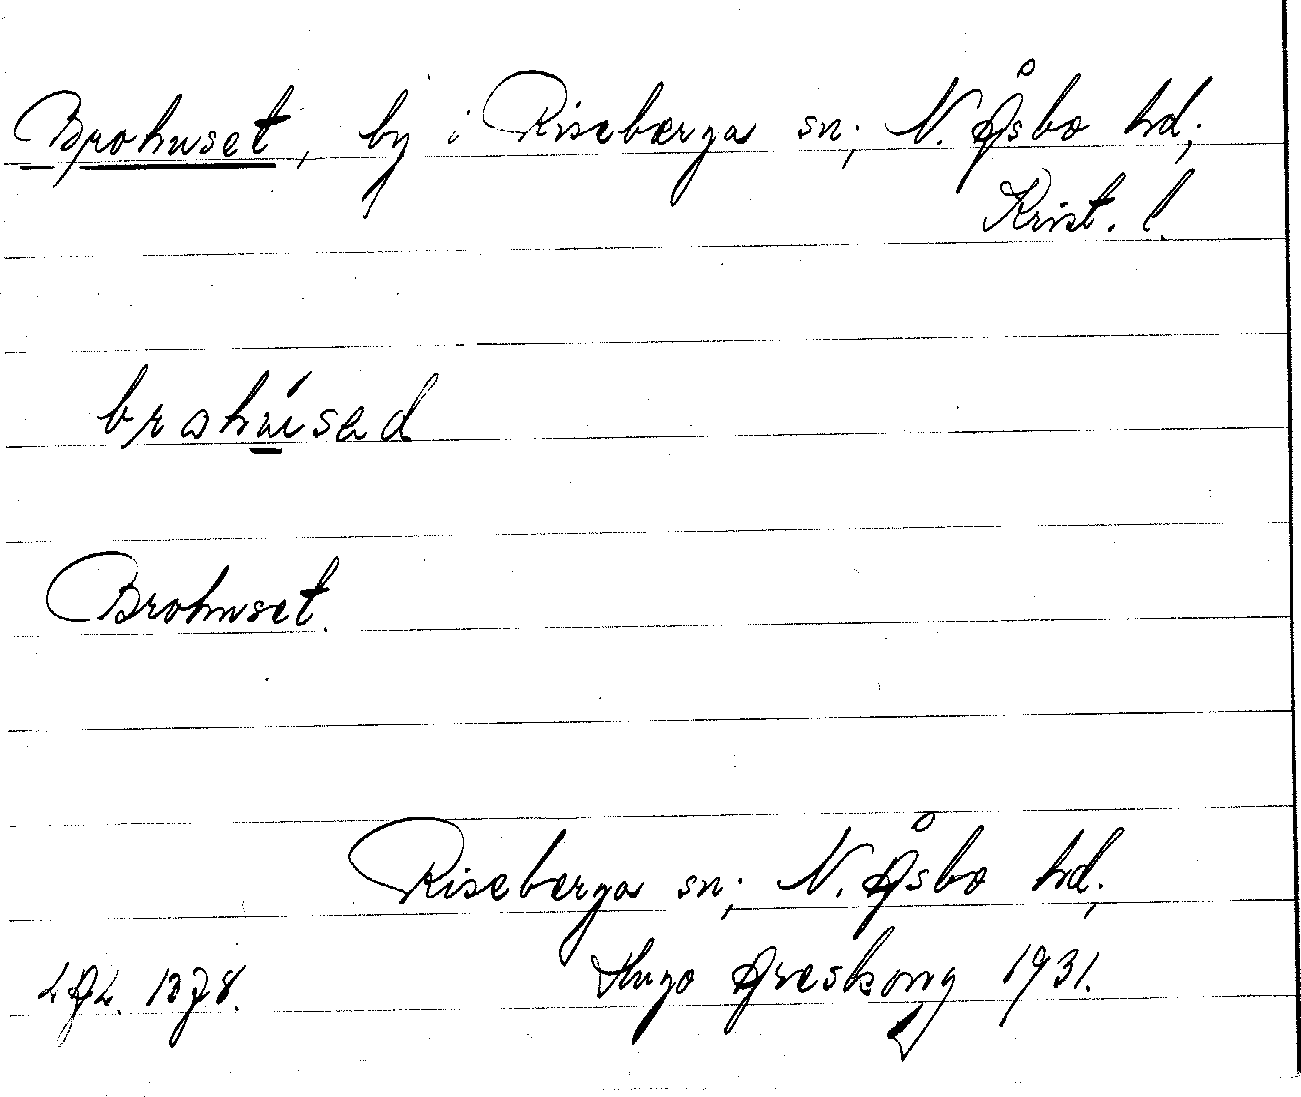 Brohuset, by i Riseberga sn; N. Åsbo hd;
Krist. l.
brohúsad
Brohuset.
Riseberga sn; N. Åsbo hd;
Hugo Areskoug 1931.
LAL.